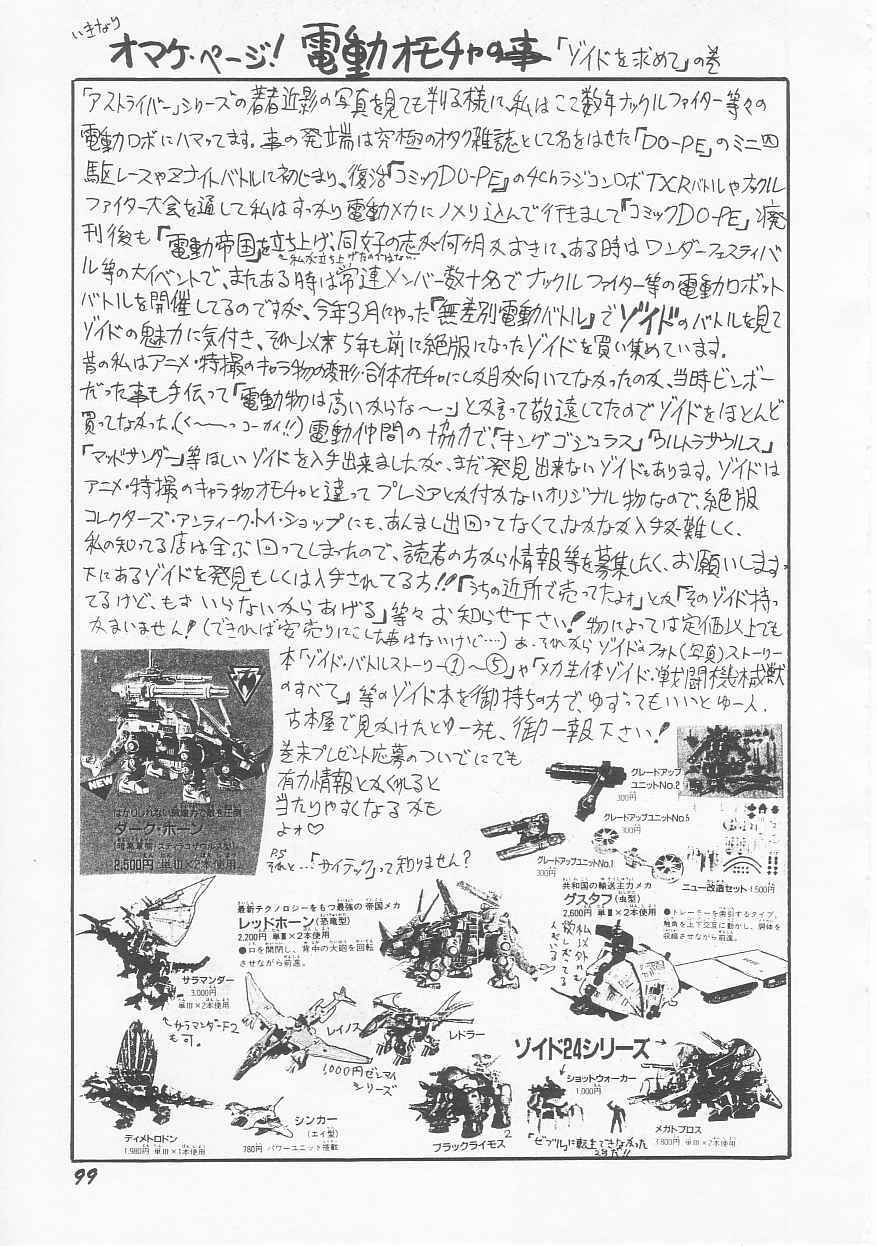 いきなり
オマケ・ページ! 電動オモチャの事「ゾイドを求めて」の巻
「アストライバー」シリーズの著者近影の写真を見ても判る様に、私はここ数年ナックルファイター等々の
電動ロボにハマッてます。事の発端は究極のオタク雑誌として名をはせた「DO-PE」のミニ四
駆レースやZナイトバトルに初じまり、復活「コミックDO-PE」の4chラジコンロボTXRバトルやナックル
ファイター大会を通して私はすっかり電動メカにノメり込んで行きまして「コミックDO-PE」廃
刊後も「電動帝国」を立ち上げ、同好の志が何ヶ月かおきに、ある時はワンダーフェスティバ
〜私が立ち上げたのではない
ル等の大イベントで、またある時は常連メンバー数十名でナックルファイター等の電動ロボット
バトルを開催してるのですが、今年3月にやった『無差別電動バトル』でゾイドのバトルを見て
ゾイドの魅力に気付き、それ以来5年も前に絶版になったゾイドを買い集めています。
昔の私はアニメ・特撮のキャラ物の変形・合体オモチャにしか目が向いてなかったのと、当時ビンボー
だった事も手伝って「電動物は高いからな〜」とか言って敬遠してたのでゾイドをほとんど
買ってなかった、(く〜〜っコーカイ!!)電動仲間の協力で、「キングゴジュラス」「ウルトラザウルス」
「マッドサンダー」等ほしいゾイドを入手出来ましたが、まだ発見出来ないゾイドもあります。ゾイドは
アニメ・特撮のキャラ物オモチャと違ってプレミアとか付かないオリジナル物なので、絶版
コレクターズ・アンティーク・トイ・ショップにも、あんまし出回ってなくて、なかなか入手が難しく、
私の知ってる店は全ぶ回ってしまったので、読者の方から情報等を募集したく、お願いします
下にあるゾイドを発見もしくは入手されてる方!!「うちの近所で売ってたよォ」とか「そのゾイド持っ
てるけど、もういらないからあげる」等々お知らせ下さい!物によっては定価以上でも
かまいません!(できれば安売りにこした事はないけど…)あ、それからゾイドのフォト(写真)ストーリー
本「ゾイド・バトルストーリー①〜⑤」や「メカ生体ゾイド・戦闘機械獣
のすべて」等のゾイド本を御持ちの方で、ゆずってもいいとゆー人、
古本屋で見かけたとゆー方も、御一報下さい!
巻末プレゼント応募のついでにでも
有力情報とかくれると
当たりやすくなるかも
よォ♡
P.S
それと…「サイテック」って知りません?
NEW
はかりしれない破壊力で敵を圧倒
ダーク・ホーン
(暗黒軍団・スティラコザウルス型)
2,500円 単III×2本使用
グレードアップ
ユニットNo.2
300円
グレードアップユニットNo.5
300円
グレードアップユニットNo.1
300円
ニュー改造セット 1,500円
最新テクノロジーをもつ最強の帝国メカ
レッドホーン(恐竜型)
2,200円 単III×2本使用
●口を開閉し、背中の大砲を回転
させながら前進。
共和国の輸送主力メカ
グスタフ(虫型)
2,600円 単III×2本使用
●トレーラーを索引するタイプ。
触角を上下交互に動かし、胴体を
収縮させながら前進。
私以外にも
欲しがってる
人がいる
サラマンダー
3,000円
単III×2本使用
↑サラマンダーF2
も可。
レイノス
レドラー
1,000円ゼンマイ
シリーズ
ゾイド24シリーズ
ショットウォーカー
1,000円
メガトプロス
1,800円 単III×2本使用
ディメトロドン
1,980円 単III×1本使用
シンカー
(エイ型)
780円 パワーユニット搭載
ブラックライモス
99